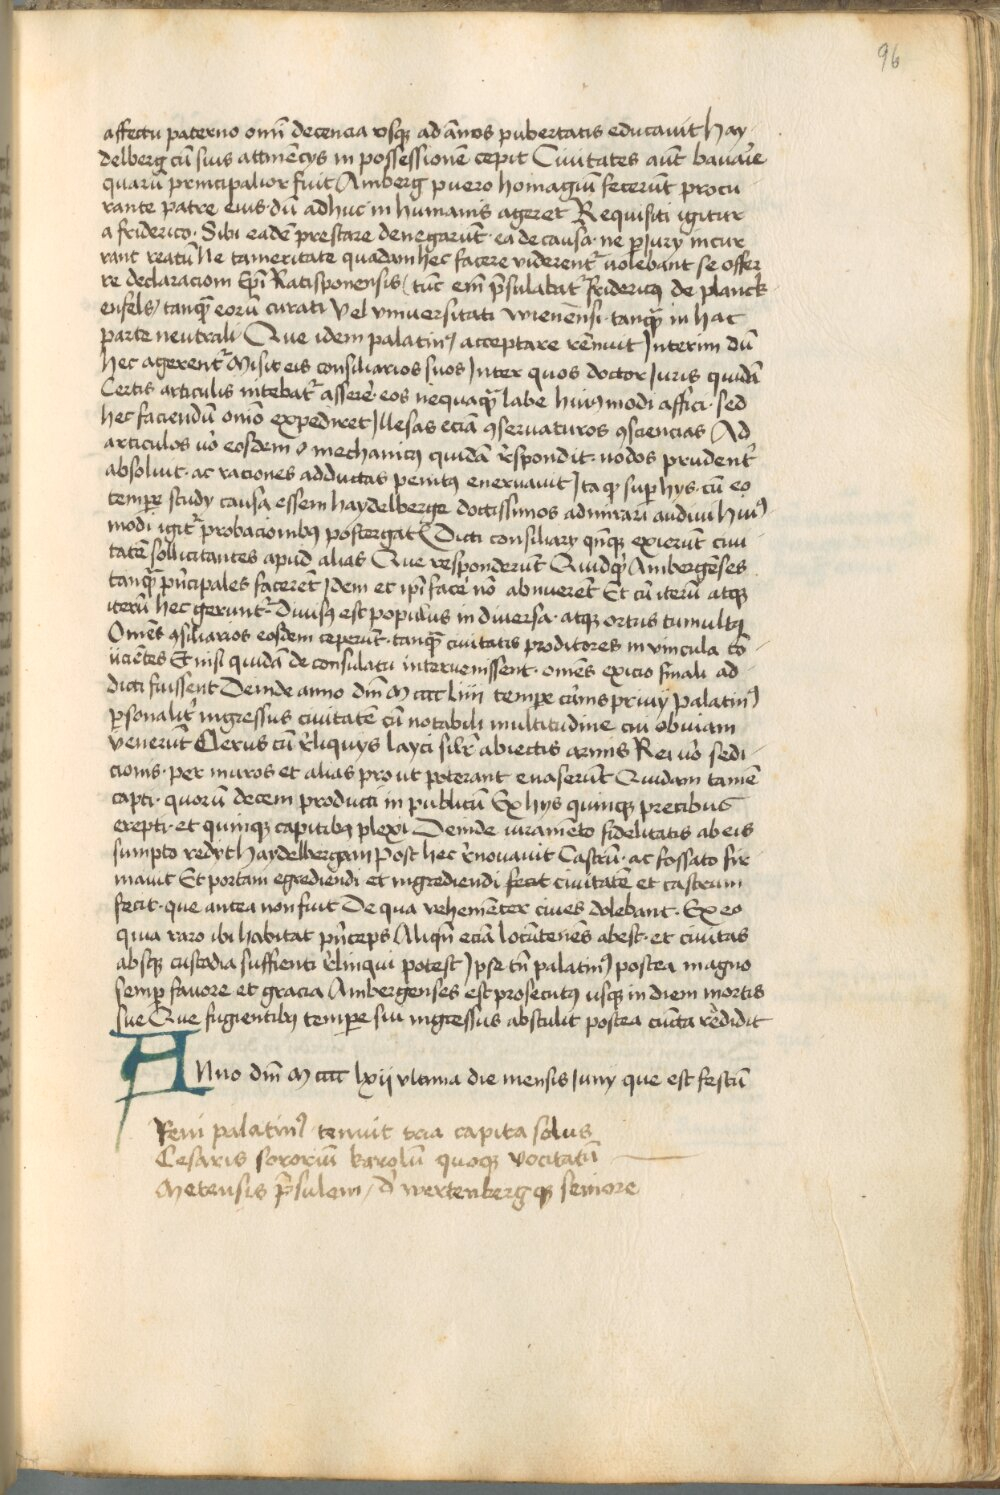 96
affectu paterno omī decencia vsqꝫ ad ānos pubertatis educauit Hay
delberg cū suis attinēcijs in possessionē cepit Ciuitates aūt bauarie
quarū principalior fuit Amberg puero homagiū fecerūt procu
rante patre eius dū adhuc in humanis ageret Requisiti igitur
a friderico. Sibi eadē prestare denegarūt. ea de causa. ne ꝑiurij incur
rant reatū Ne tameritate quadam hec facere viderentᷣ volebant se offer
re declaraciom Epī Ratisponensis / tūc em̄ p̄sulabat Fridericꝰ de planck
enfels / tanqꝫ̄ eorū curati Vel vniuersitati wienēnsi. tanqꝫ̄ in hac
parte neutrali Que idem palatinꝰ acceptare rēnuit Interim dū
hec agerentᷣ Misit eis consiliarios suos Inter quos doctor Iuris quidā
Certis articulis nitebatᷣ asserē. eos nequaqꝫ̄ labe huiꝰmodi affici. sed
hec faciendū omīo expediret Illesas eciā ꝯseruaturos ꝯsciencias Ad
articulos v̄o eosdem mechanicꝰ quidā r̄spondit. nodos prudentᷣ
absoluit. ac raciones adductas penitꝰ eneruauit Itaqꝫ suꝑ hijs. cū eo
temꝑe studij causa essem haydelberge doctissimos admirari audiui Huiꝰ
modi igitᷣ probacionibꝫ postergatꝭ Dicti consiliarij qn̄qꝫ exierūt ciui
tatē sollicitantes apud alias Que responderūt Quidqd̄ Ambergēses
tanqꝫ̄ pn̄cipales facerēt Idem et ip̄i facē nō abnuerēt Et cū iterū atqꝫ
iterū hec geruntᷣ. Diuisꝰ est populus in diuersa. atqꝫ ortus tumultꝰ
Omēs ꝯsiliarios eosdem ceperūt. tanqꝫ̄ ciuitatis proditores in vincula cō
ijciētes Et nisi quidā de consulatu interuenissent. omēs exicio finali ad
dicti fuissent Deinde anno dm̄ M cccc liiii temꝑe priuij palatinꝰ
ꝑsonalitᷣ ingressus ciuitatē cū notabili multitudine cui obuiam
venerūt Clerus cū r̄liquijs layci silr̄ abiectis armis Rei v̄o sedi
cionis. per muros et alias prout poterant euaserūt Quidam tamē
capti. quorū decem producti in publicū Ex hijs quinqꝫ precibus
erepti. et quinqꝫ capitibꝫ plexi Deinde iuramēto fidelitatis ab eis
sumpto redijt Haydelbergam Post hec r̄nouauit Castrū. ac fossato fir
mauit Et portam egrediendi et ingrediendi fecit ciuitatē et castrum
fecit. que antea non fuit De qua vehemēter ciues dolebant. Ex eo
quia raro ibi habitat pn̄ceps Aliqn̄ eciā locūtenēs abest. et ciuitas
absqꝫ custodia suffienti r̄linqui potest Ipse tn̄ palatinꝰ postea magno
semꝑ fauore et gracia Ambergenses est prosecutꝰ vsqꝫ in diem mortis
sue Que fugientibꝫ temꝑe sui ingressus abstulit postea cūcta rēdidit
ANno dm̄ M cccc lxij vltima die mensis Iunij que est festū
Reni palatinꝰ. tenuit tria capita solus
Cesaris sororiū karolū quoqꝫ vocitatū
Metensis p̄sulem / d̄ wertenbergqꝫ seniore